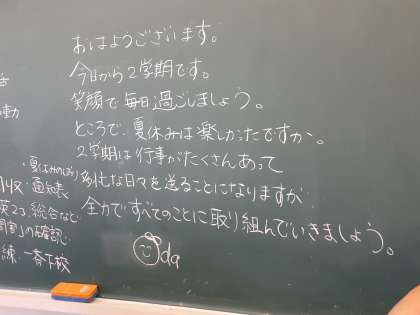 おはようございます。
今日から2学期です。
笑顔で毎日過ごしましょう。
ところで、夏休みは楽しかったですか。
2学期は行事がたくさんあって
多忙な日々を送ることになりますが
全力ですべてのことに取り組んでいきましょう。
Oda
活
動
・夏休みの
収・通知表
英コ、総合など
の確認
練、一斉下校